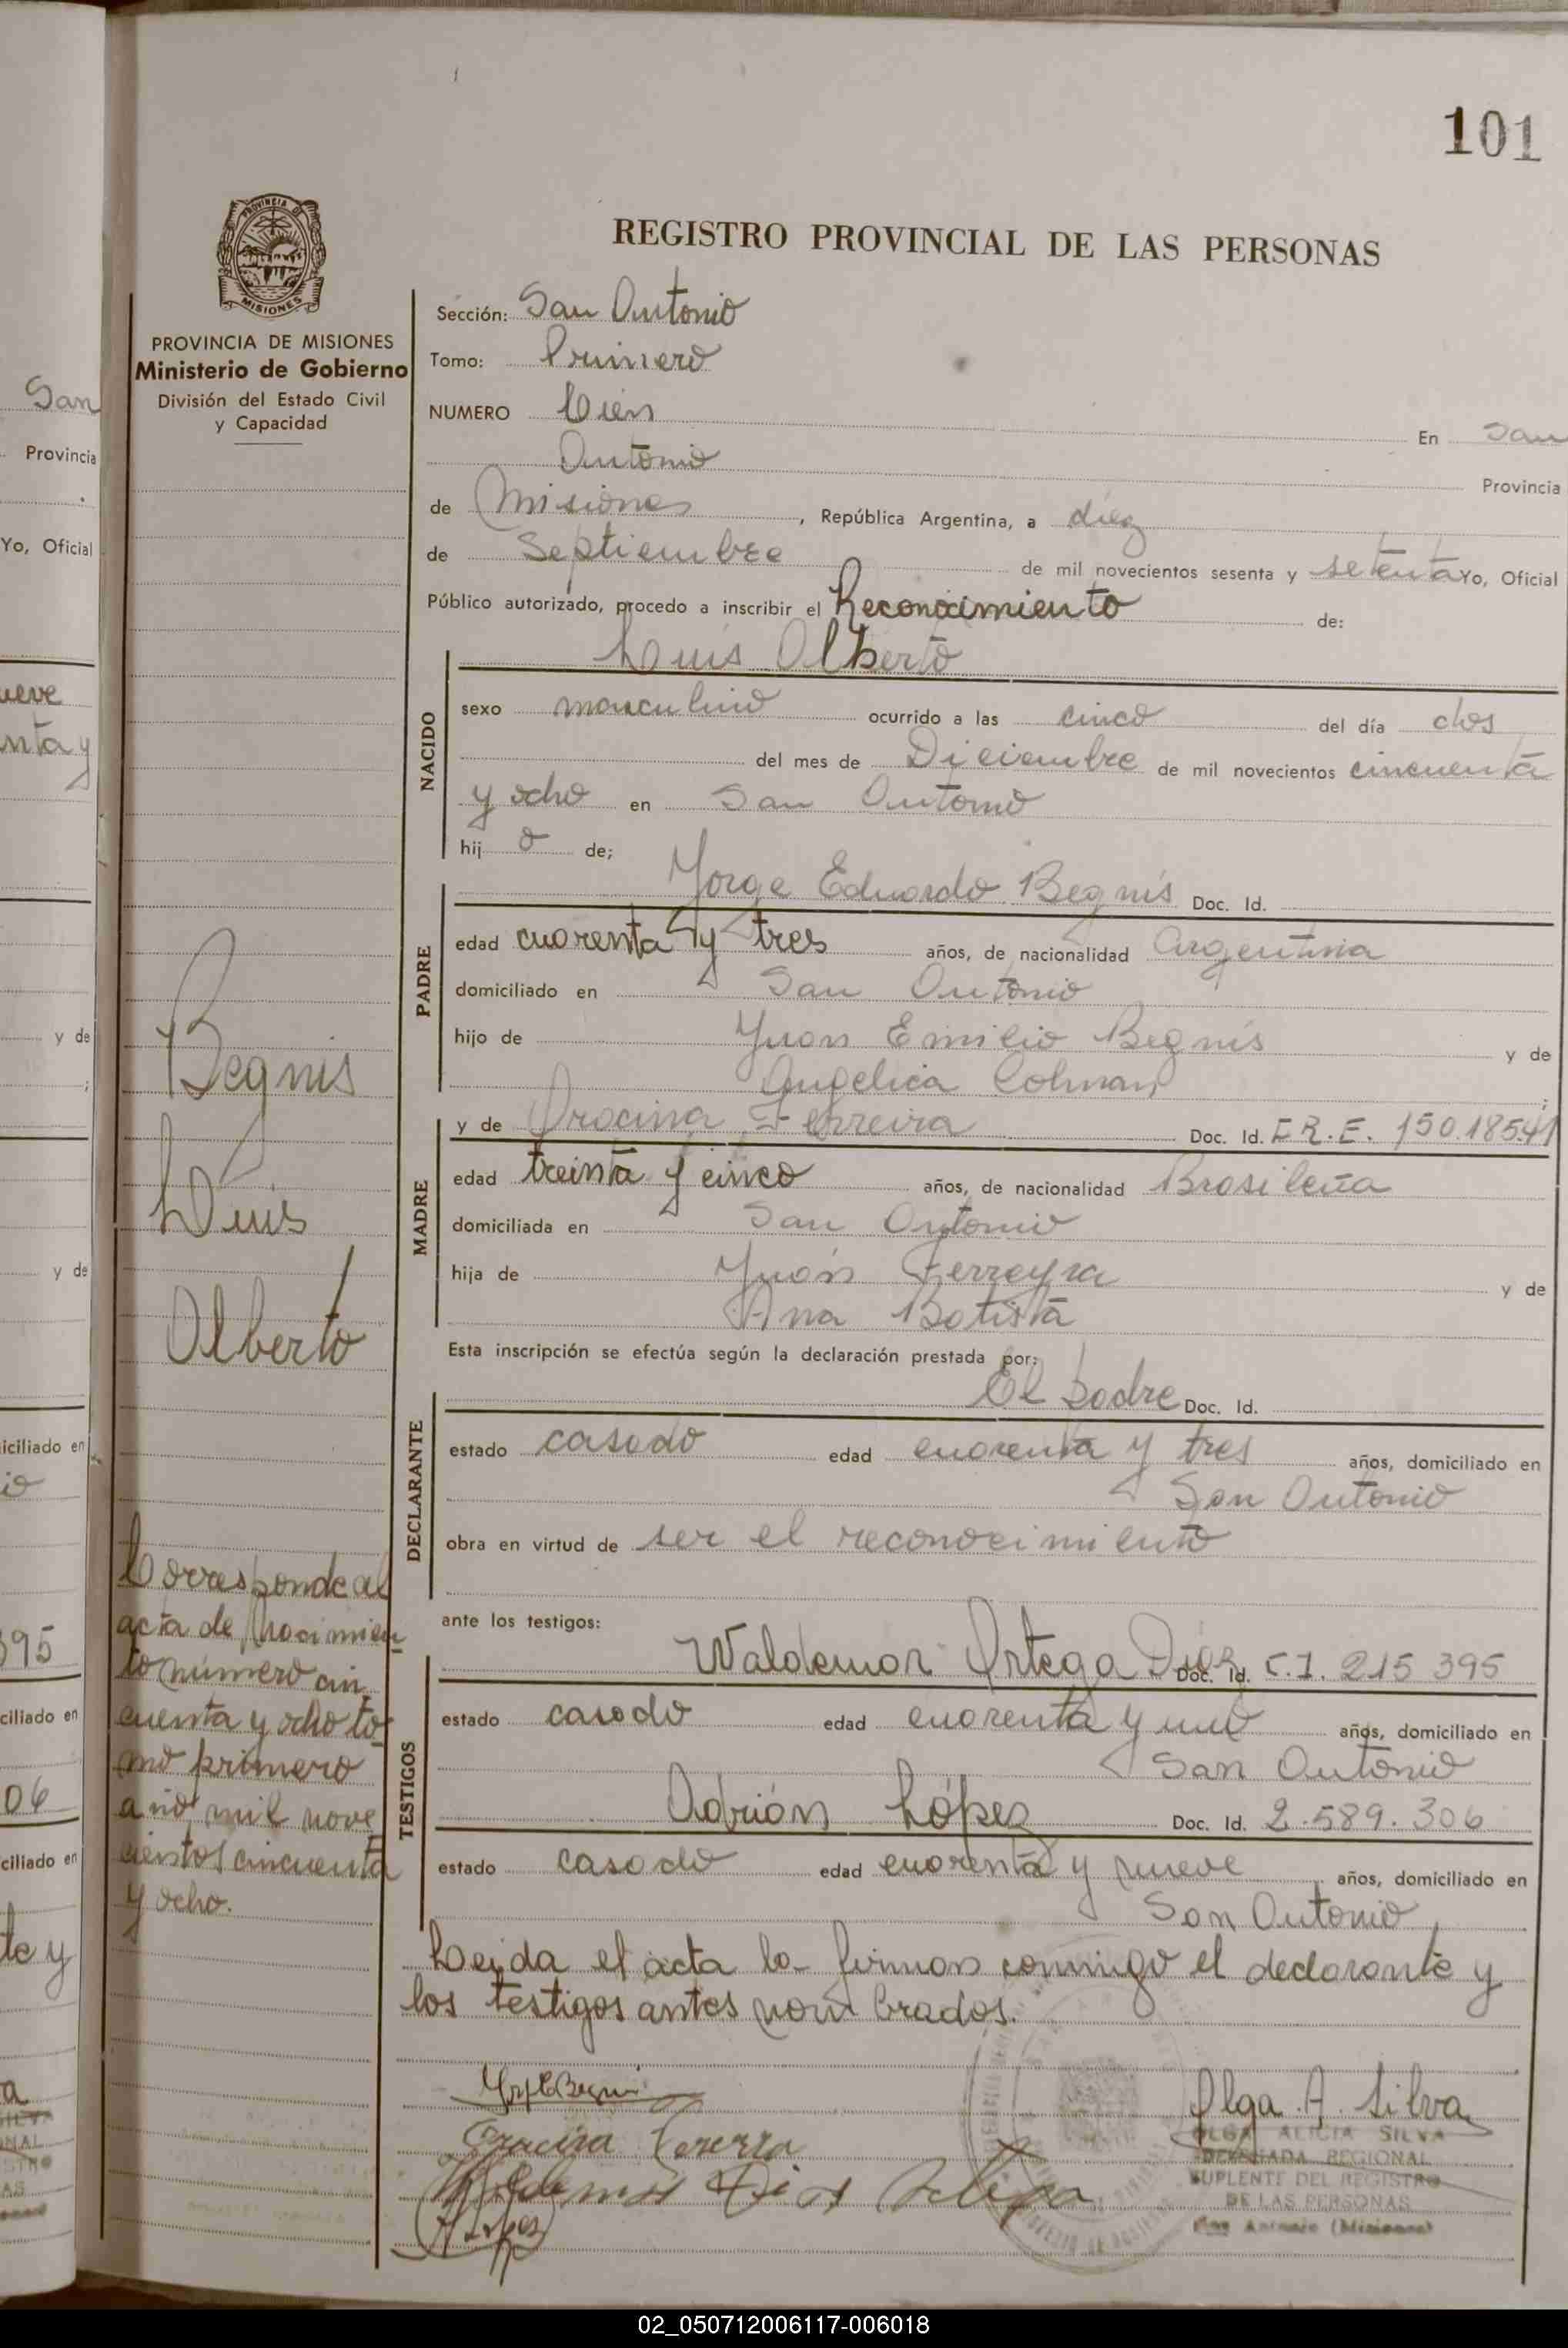 101
REGISTRO PROVINCIAL DE LAS PERSONAS
PROVINCIA DE MISIONES
Ministerio de Gobierno
División del Estado Civil
y Capacidad
Sección: San Antonio
Tomo: Primero
NUMERO Cien En San
Antonio Provincia
de Misiones, República Argentina, a diez
de Septiembre de mil novecientos sesenta y setenta Yo, Oficial
Público autorizado, procedo a inscribir el Reconocimiento de:
Luis Alberto
NACIDO
sexo masculino ocurrido a las cinco del día dos
del mes de Diciembre de mil novecientos cincuenta
y ocho en San Antonio
hij o de;
PADRE
Jorge Eduardo Begnis Doc. Id.
edad cuarenta y tres años, de nacionalidad Argentina
domiciliado en San Antonio
hijo de Juan Emilio Begnis y de
Angelica Colman;
MADRE
y de Ferreira Doc. Id. 150.18541
edad treinta y cinco años, de nacionalidad Brasileña
domiciliada en San Antonio
hija de Juan Ferreyra y de
Ana Batista
Esta inscripción se efectúa según la declaración prestada por:
DECLARANTE
El padre Doc. Id.
estado casado edad cuarenta y tres años, domiciliado en
San Antonio
obra en virtud de ser el reconocimiento
ante los testigos:
TESTIGOS
Waldemar Ortega Díaz Doc. Id. C.I. 215 395
estado casado edad cuarenta y uno años, domiciliado en
San Antonio
Adrián López Doc. Id. 2.589.306
estado casado edad cuarenta y nueve años, domiciliado en
San Antonio,
Leida el acta la firman conmigo el declarante y
los testigos antes nombrados.
Begnis
Luis
Alberto
Corresponde al
acta de Nacimien
to número cin
cuenta y ocho to
mo primero
año mil nove
cientos cincuenta
y ocho.
Olga A. Silva
OLGA ALICIA SILVA
DELEGADA REGIONAL
SUPLENTE DEL REGISTRO
DE LAS PERSONAS
San Antonio (Misiones)
San
Provincia
Yo, Oficial
ueve
nta y
y de
y de
iciliado en
io
395
ciliado en
06
ciliado en
te y
02_050712006117-006018